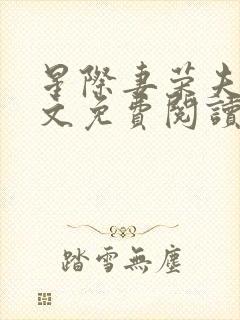 星際妻榮夫
文免費閱讀
踏雪無塵